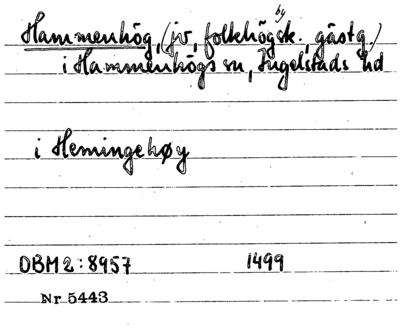 Hammenhög, (jv, folkhögsk. by, gästg.)
i Hammenhögs sn, Ingelstads hd
i Hemingehøy
DBM2:8957 1499
Nr 5443